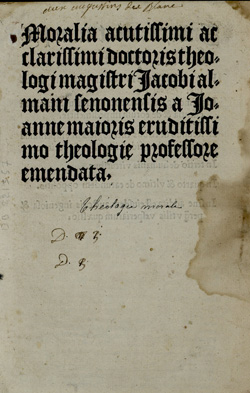 aux augustins de
Moralia acutissimi ac
clarissimi doctoris theo-
logi magistri Jacobi al-
mani senonensis a Jo-
anne maioris eruditissi
mo theologie professore
emendata.
theologia moralis
D.
D.